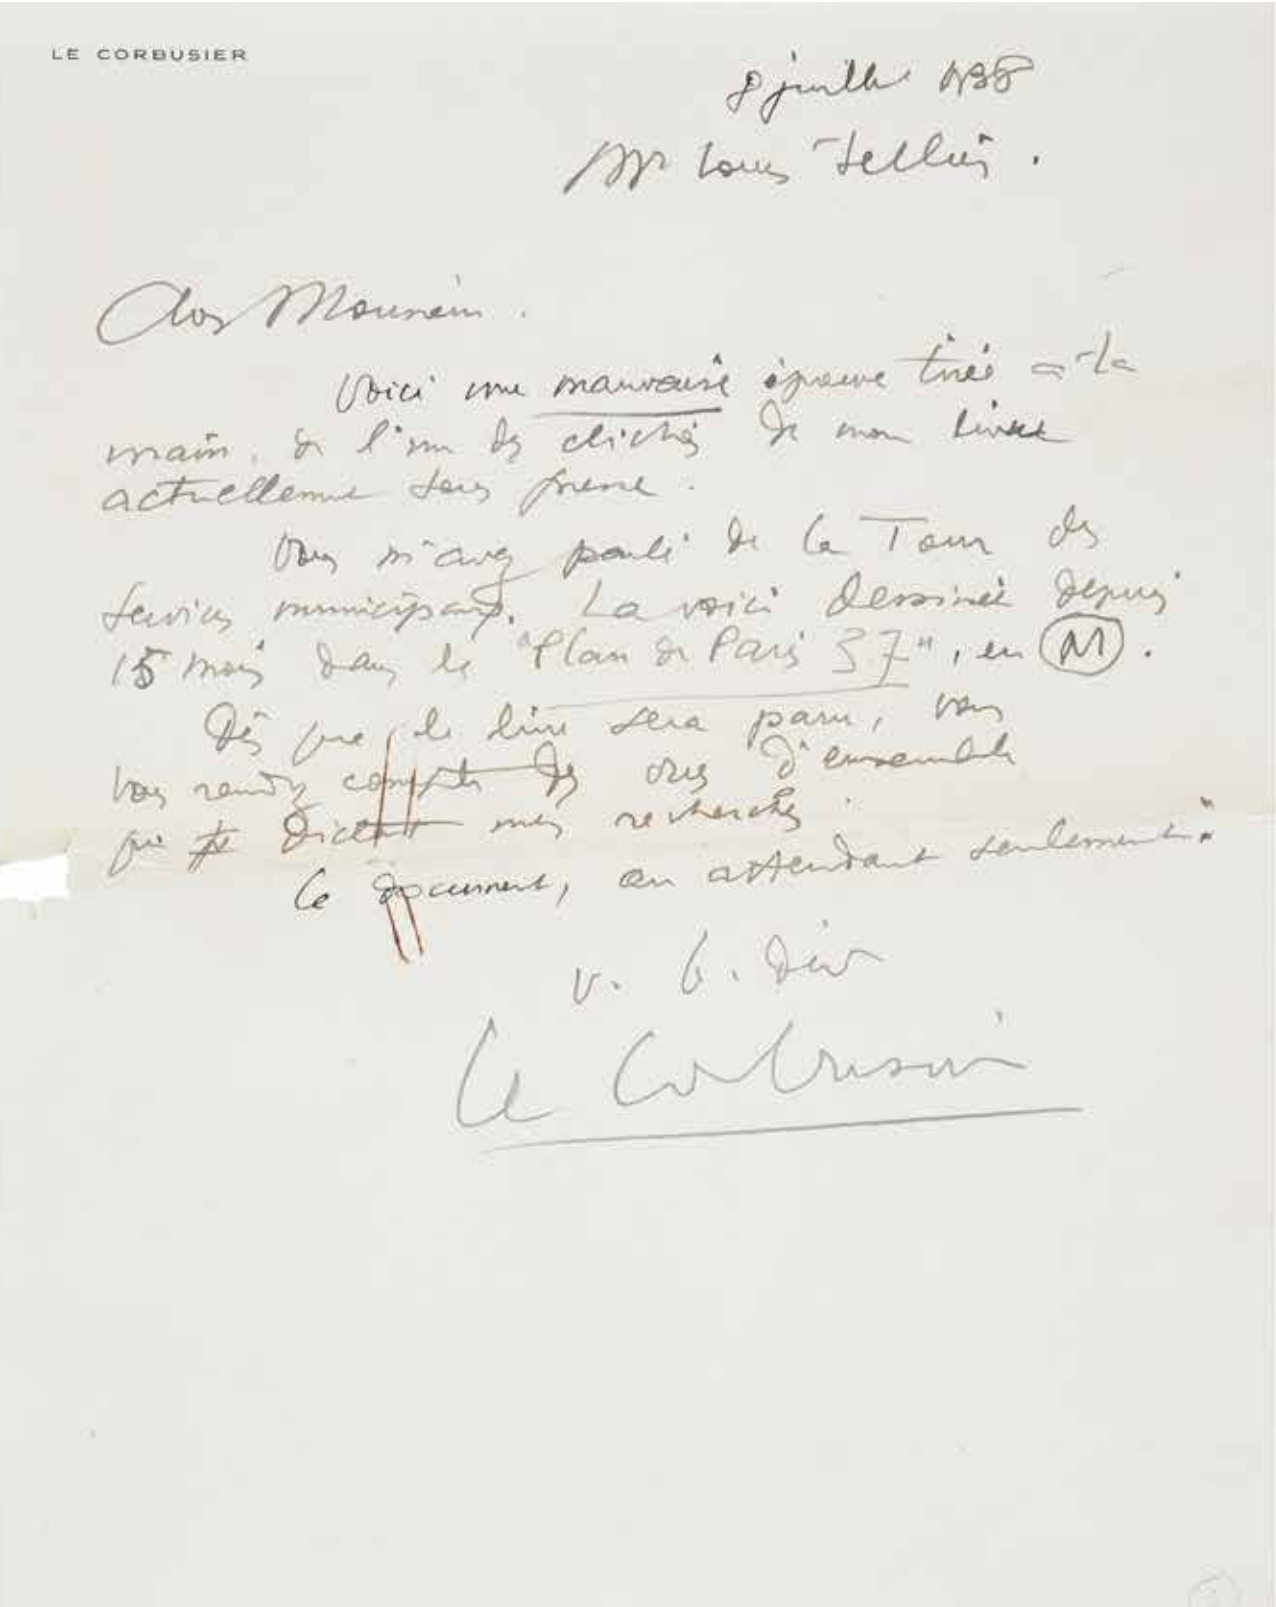 LE CORBUSIER
8 juillet 1938
Mr Louis Tellier.
Cher Monsieur.
Voici une mauvaise épreuve tirée à la
main, de l'un des clichés de mon livre
actuellement sous presse.
Vous m'avez parlé de la Tour des
Services municipaux. La voici dessinée depuis
15 mois dans le "Plan de Paris 37", en M.
Dès que le livre sera paru, vous
vous rendrez compte des vues d'ensemble
qui dictent mes recherches.
Ce document, en attendant seulement.
v. b. dév
Le Corbusier